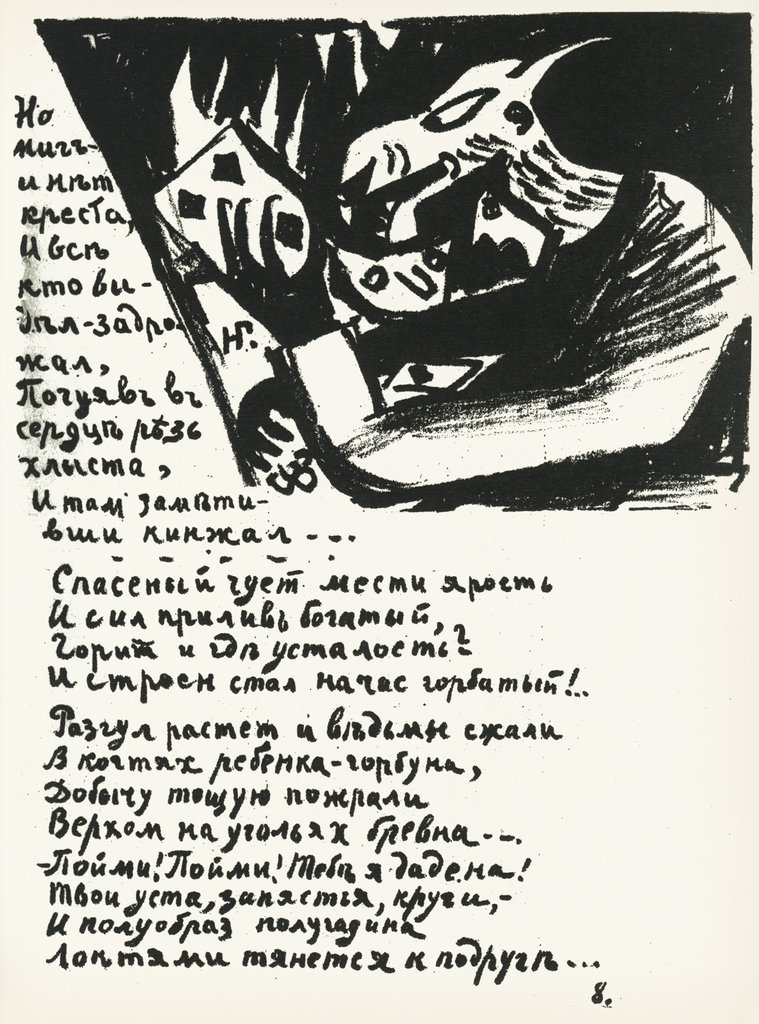 Но
мигъ-
и нѣт
креста,
И всѣ
кто ви-
дѣл-задро-
жал,
Почуявъ въ
сердцѣ рѣзь
хлыста,
И там замѣти-
вши кинжал ---
НГ.
Спасеный чует мести ярость
И сил приливъ богатый,
Горит и гдѣ усталость?
И строен стал на час горбатый!..
Разгул растет и вѣдьмы сжали
В когтях ребенка-горбуна,
Добычу тощую пожрали
Верхом на угольях бревна...
-Пойми! Пойми! Тебѣ я дадена!
Твои уста, запястья, круги,-
И полуобраз полугадина
Локтями тянется к подругѣ...
8.